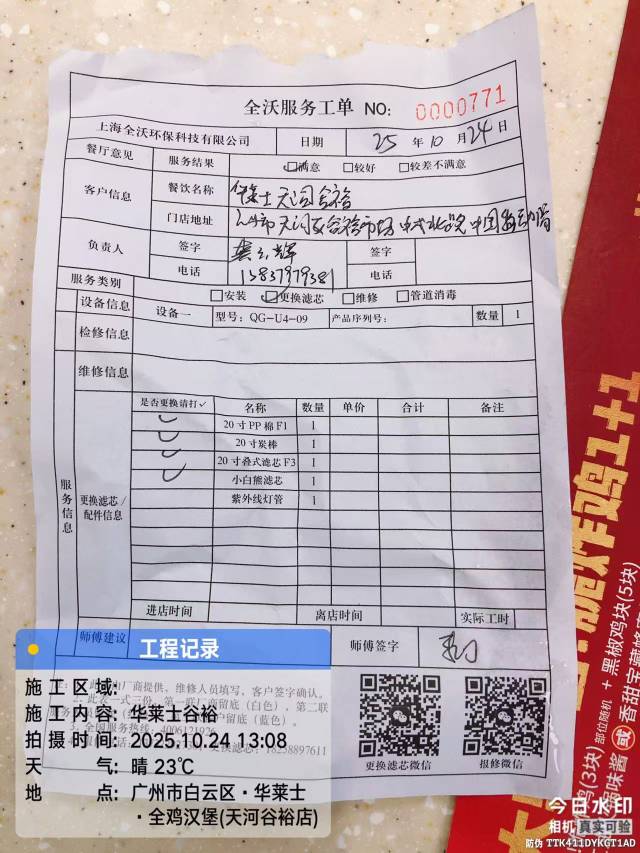 全沃服务工单 NO: 0000771
上海全沃环保科技有限公司 日期 25 年 10 月 24 日
餐厅意见 服务结果 满意 较好 较差不满意
客户信息 餐饮名称 华莱士天河谷裕
门店地址
负责人 签字 签字
电话 13837979381 电话
服务类别 安装 更换滤芯 维修 管道消毒
设备信息 设备一 型号: QG-U4-09 产品序列号: 数量 1
检修信息
维修信息
是否更换请打✓ 名称 数量 单价 合计 备注
✓ 20寸PP棉F1 1
✓ 20寸炭棒 1
✓ 20寸叠式滤芯F3 1
✓ 小白熊滤芯 1
紫外线灯管 1
服务信息
更换滤芯/配件信息
进店时间 离店时间 实际工时
师傅建议 师傅签字
厂商提供,维修人员填写,客户签字确认。
一式三份,第一联厂商留底(白色),第二联
户留底(蓝色)。
全国服务热线: 4006121926
更换滤芯: 18258897611
更换滤芯微信 报修微信
工程记录
施工区域:
施工内容: 华莱士谷裕
拍摄时间: 2025.10.24 13:08
天气: 晴 23℃
地点: 广州市白云区·华莱士
·全鸡汉堡(天河谷裕店)
脆炸鸡1+1
(3块) 部位随机 + 黑椒鸡块(5块)
味酱 或 香甜宝藏
今日水印
相机 真实可验
防伪 TTK411DYKCT1AD